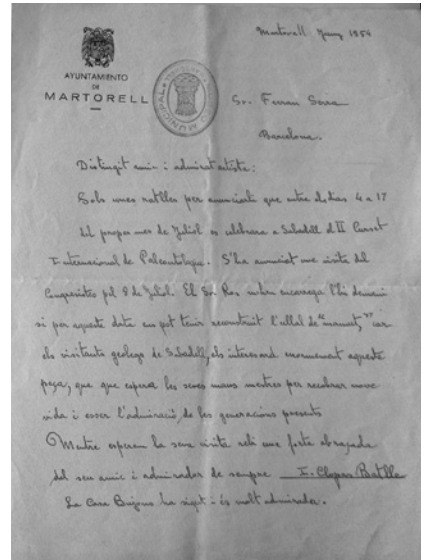 Martorell Juny 1954
AYUNTAMIENTO
DE
MARTORELL
MUNICIPAL
Sr. Ferran Serra
Barcelona.
Distingit amic i admirat artista:
Sols unes ratlles per anunciarli que entre els dias 4 a 17
del proper mes de Juliol es celebrara a Sabadell el II Curset
Internacional de Paleontologia. S'ha anunciat una visita del
Congresistes pel 8 de Juliol. El Sr. Ros m'encarrega l'hi demani
si per aquesta data em pot tenir reconstruit l'ullal de "mamut," car
els visitants geolegs de Sabadell, els interesará enormement aquesta
peça, que espera les seves mans mestres per recobrar nova
vida i esser l'admiració de les generacions presents
Mentre esperem la seva visita rebi una forta abraçada
del seu amic i admirador de sempre I. Clopas Batlle
La Casa Bujons ha sigut i és molt admirada.